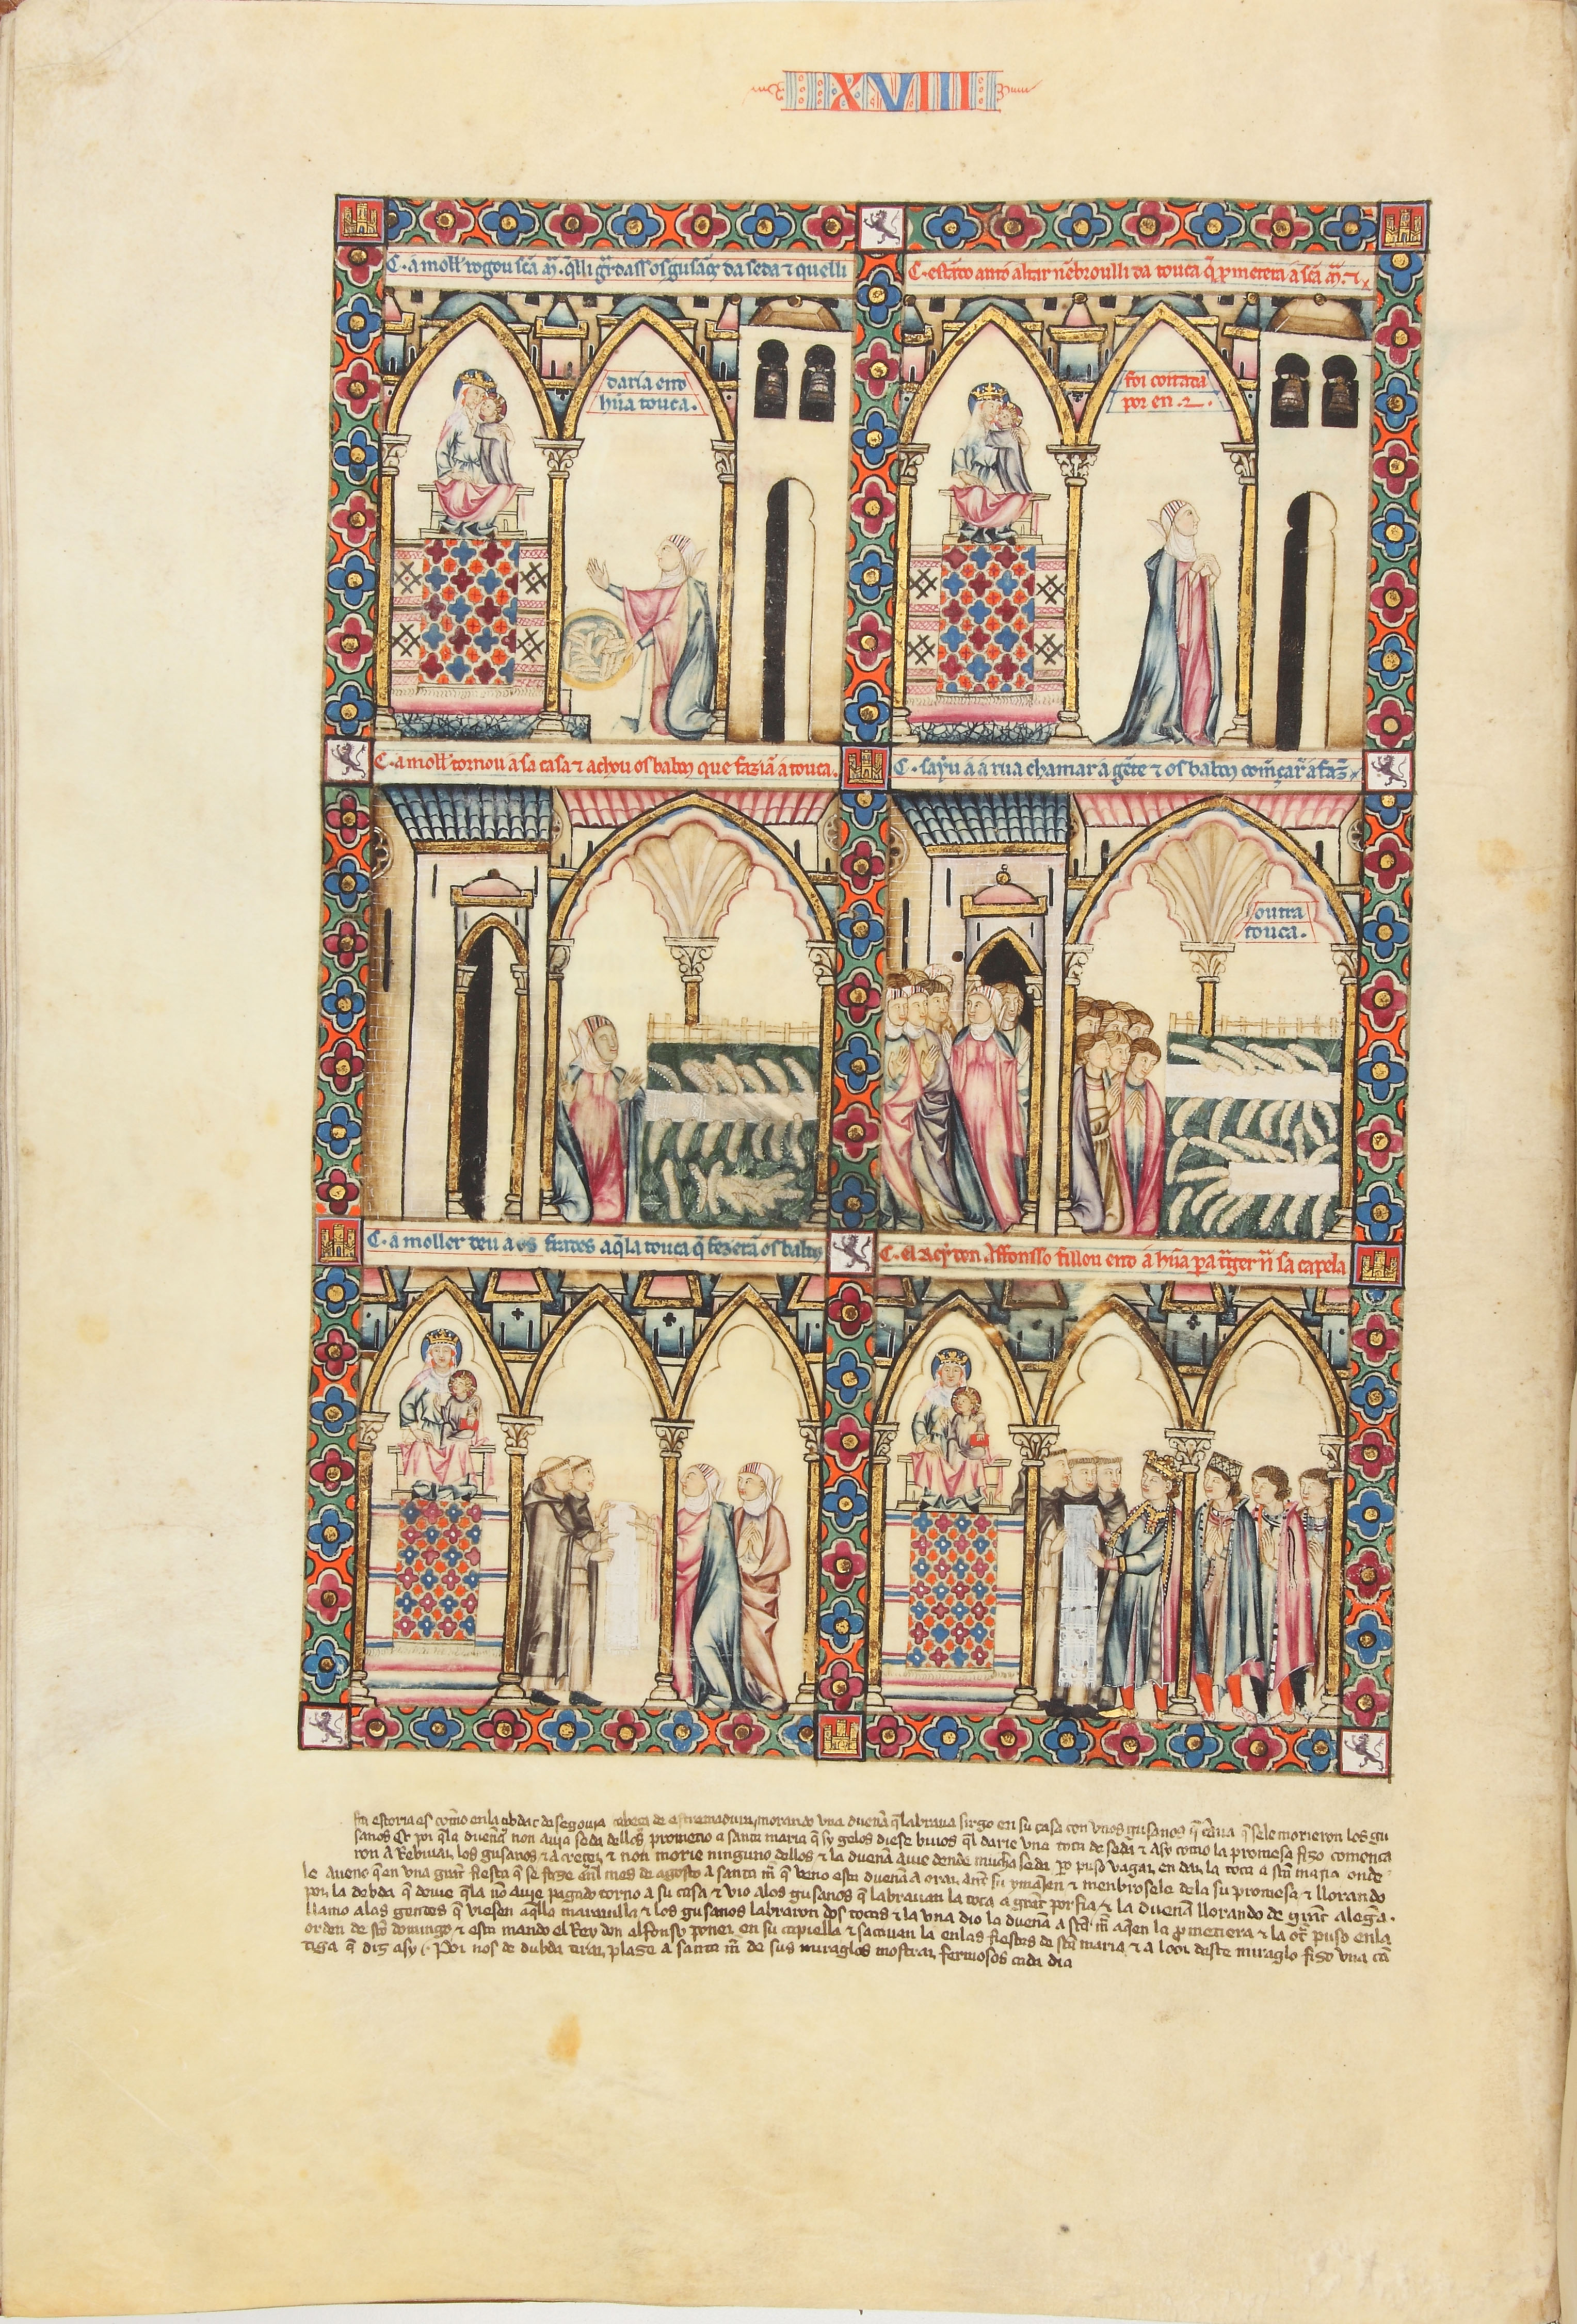 XVIII
C. a moll' rogou sc̄a m̄. q̄lli gr̄dass os gusãos da seda ⁊ quelli
daria ento
hũa touca.
C. estãdo anto altar nẽbroulli da touca q̄ p̄metera a sc̄a m̄. ⁊
foi coitada
por en. ⁊.
C. a moll' tornou a sa casa ⁊ achou os babous que faziã a touca.
C. sayu á á rua chamar á gẽte ⁊ os babous com̃çarᷓ a faz̃
outra
touca.
C. a moller deu a os frades aq̄la touca q̄ fezerã os babous
C. el Rey don Affonsso fillou end á hũa pa trãger ñ sa capela
esta estoria es como en la çibdat de segouia cabeça de estremadura, morando vna dueña q̄ labraua sirgo en su casa con vnos gusanos q̄ cᷓaua q̄ sele morieron los gu
sanos Et por q̄la dueña non auia seda dellos prometio a santa maria q̄ sy gelos diese biuos q̄l darie vna toca de seda ⁊ asy como la promesa fizo comença
ron a Rebiuar los gusanos ⁊ a creçer ⁊ non morie ninguno dellos ⁊ la dueña auie dende mucha seda pero puso vagar en dar la toca a stã maria onde
le aueno q̄ en vna grãt fiesta q̄ se faze enel mes de agosto a santa m̄ q̄ veno esta dueña a orar ante su ymajen ⁊ menbrosele dela su promesa ⁊ llorando
por la debda q̄ deuie q̄la nõ auie pagado torno a su casa ⁊ vio alos gusanos q̄ labrauan la toca a grãt porfia ⁊ la dueña llorando de grãt alegᷓa.
llamo alas gentes q̄ viesen aq̄lla marauilla ⁊ los gusanos labraron dos tocas ⁊ la vna dio la dueña a stã m̄ aq̄en la p̄metiera ⁊ la otᷓ puso enla
orden de stõ domingo ⁊ esta mando el Rey don alfonso poner en su capiella ⁊ sacauan la enlas fiestas de stã maria ⁊ a loor deste miraglo fizo vna cã
tiga q̄ diz asy. Por nos de dubda tirar, plaze a santa m̄ de sus miraglos mostrar fermosos cada dia